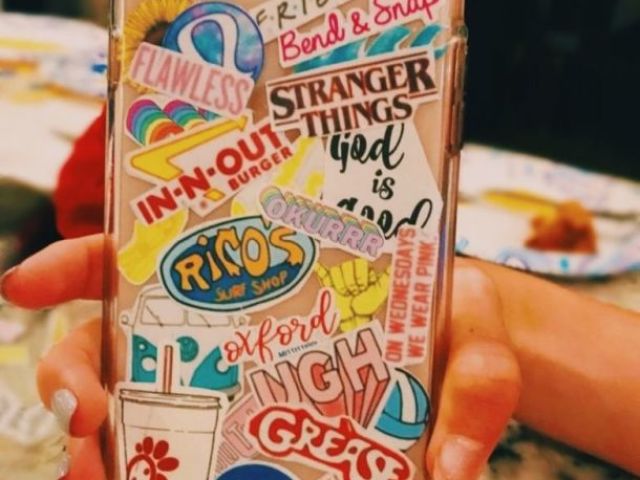 F·R·I
Bend & Snap
FLAWLESS
STRANGER
THINGS
God
is
good
IN-N-OUT
BURGER
OKURRR
RICO'S
SURF SHOP
ON WEDNESDAYS
WE WEAR PINK
oxford
NGH
GREASE